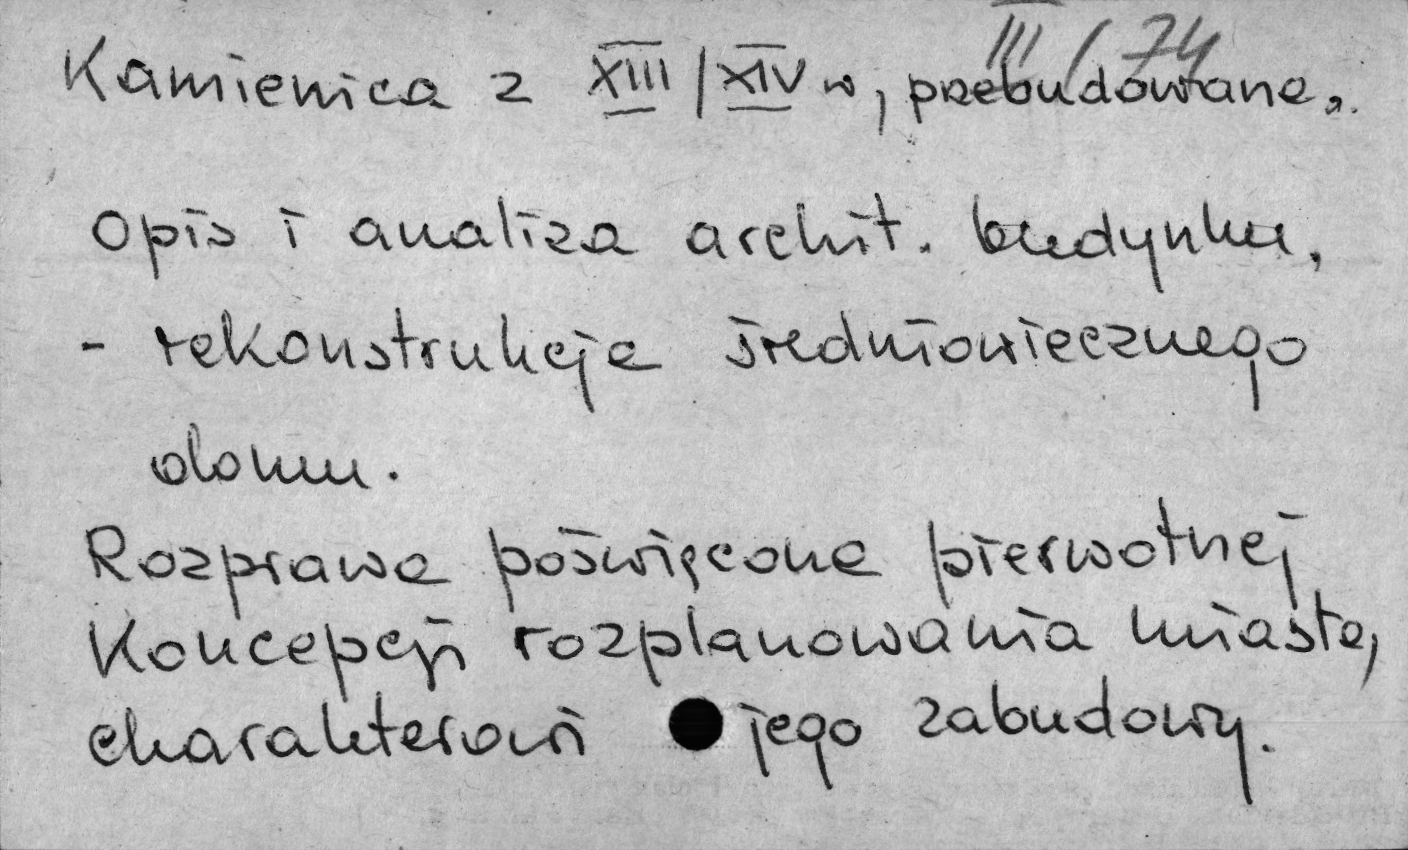 III/74
Kamienica z XIII/XIV w, przebudowana.
Opis i analiza archit. budynku,
- rekonstrukcja średniowiecznego
domu.
Rozprawa poświęcona pierwotnej
koncepcji rozplanowania miasta,
charakterowi jego zabudowy.